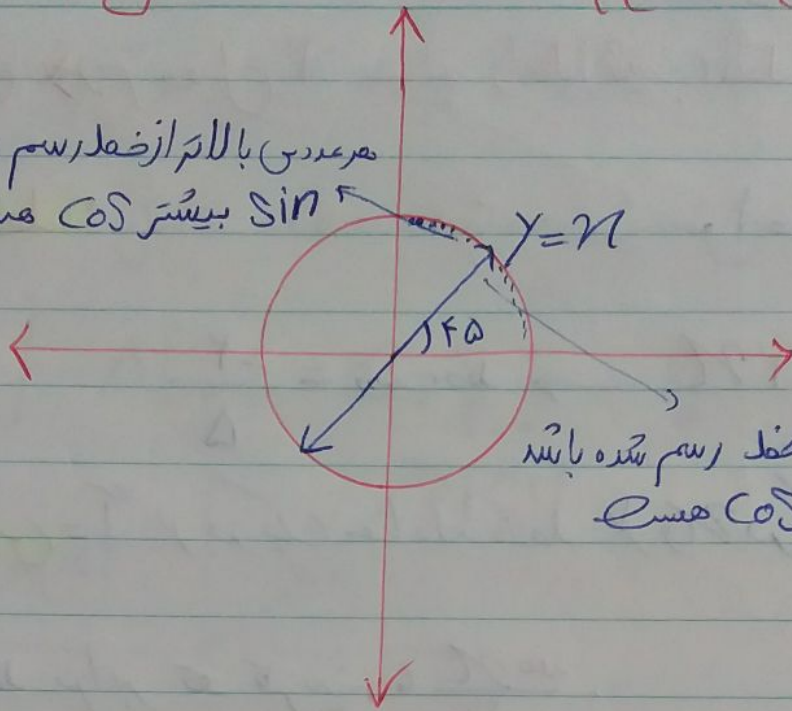 هر عددی بالاتر از خط رسم
sin بیشتر cos
y=x
۴۵
خط رسم شده باشد
cos هست